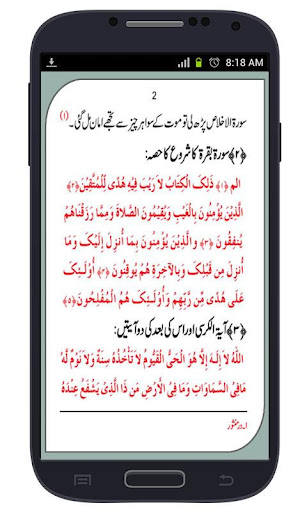 8:18 AM
2
سورۃ الاخلاص پڑھ لی تو موت کے سوا ہر چیز سے تجھے امان مل گئی۔ (۱)
﴿۲﴾ سورۃ بقرۃ کا شروع کا حصہ:
الم ﴿۱﴾ ذَلِكَ الْكِتَابُ لاَ رَيْبَ فِيهِ هُدًى لِّلْمُتَّقِينَ ﴿۲﴾
الَّذِينَ يُؤْمِنُونَ بِالْغَيْبِ وَيُقِيمُونَ الصَّلاةَ وَمِمَّا رَزَقْنَاهُمْ
يُنفِقُونَ ﴿۳﴾ والَّذِينَ يُؤْمِنُونَ بِمَا أُنزِلَ إِلَيْكَ وَمَا
أُنزِلَ مِن قَبْلِكَ وَبِالآخِرَةِ هُمْ يُوقِنُونَ ﴿۴﴾ أُوْلَئِكَ
عَلَى هُدًى مِّن رَّبِّهِمْ وَأُوْلَئِكَ هُمُ الْمُفْلِحُونَ ﴿۵﴾
﴿۳﴾ آیۃ الکرسی اور اس کی بعد کی دو آیتیں:
اللّهُ لاَ إِلَهَ إِلاَّ هُوَ الْحَيُّ الْقَيُّومُ لاَ تَأْخُذُهُ سِنَةٌ وَلاَ نَوْمٌ لَّهُ
مَا فِي السَّمَاوَاتِ وَمَا فِي الأَرْضِ مَن ذَا الَّذِي يَشْفَعُ عِنْدَهُ
۱۔ در منثور